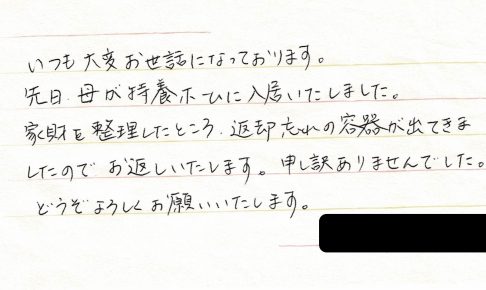 いつも大変お世話になっております。
先日、母が特養ホームに入居いたしました。
家財を整理したところ、返却忘れの容器が出てきま
したので お返しいたします。申し訳ありませんでした。
どうぞよろしくお願いいたします。